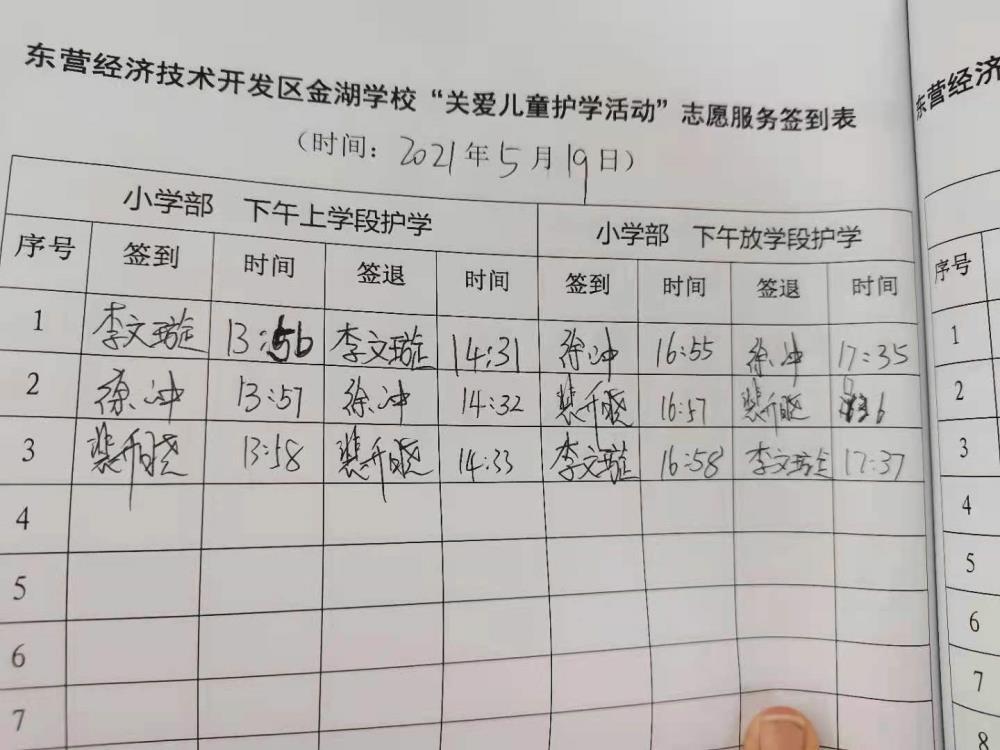 东营经济技术开发区金湖学校“关爱儿童护学活动”志愿服务签到表
东营经济
（时间：2021年5月19日）
小学部 下午上学段护学 小学部 下午放学段护学
序号 签到 时间 签退 时间 签到 时间 签退 时间 序号
1 李文璇 13:56 李文璇 14:31 徐冲 16:55 徐冲 17:35 1
2 徐冲 13:57 徐冲 14:32 16:57 2
3 13:58 14:33 李文璇 16:58 李文璇 17:37 3
4 4
5 5
6 6
7 7
8